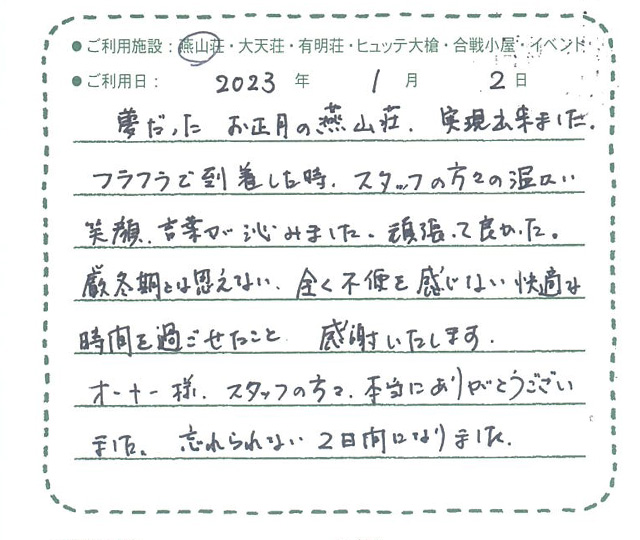 ●ご利用施設：燕山荘・大天荘・有明荘・ヒュッテ大槍・合戦小屋・イベント
●ご利用日： 2023 年 1 月 2 日
夢だった お正月の燕山荘、実現出来ました。
フラフラで到着した時、スタッフの方々の温かい
笑顔、言葉が沁みました。頑張って良かった。
厳冬期とは思えない、全く不便を感じない快適な
時間を過ごせたこと 感謝いたします。
オーナー様、スタッフの方々、本当にありがとうござい
ました。 忘れられない 2日間になりました。